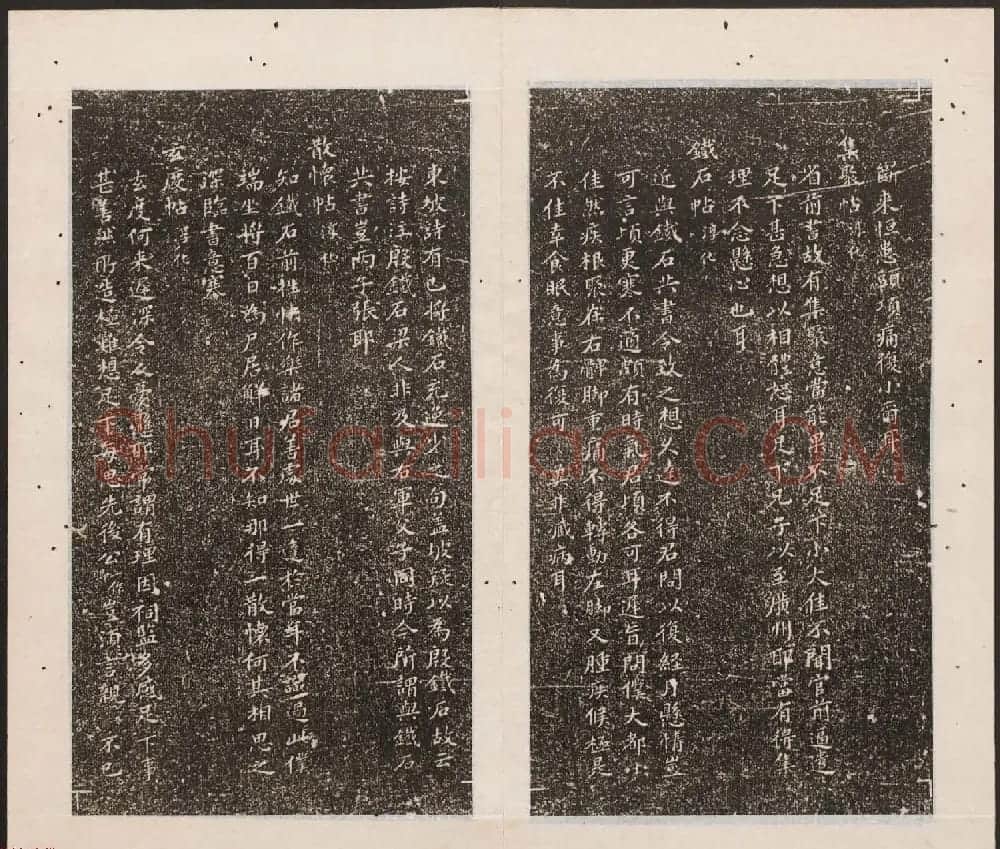 斷來恒患頭項痛復小爾耳
集聚帖淳化
省前書故有集聚意當能果不足下小大佳不聞官前逼遣
足下甚急想以相體恕耳足下兄子以至廣州耶當有得集
理不念懸心也耳
鐵石帖淳化
近與鐵石共書令致之想久達不得君問以復經月懸情豈
可言頃更寒不適頗有時氣君頃各可耳遲旨問僕大都小
佳然疾根聚在右髀脚重痛不得轉動左脚又腫疾候極是
不佳幸食眠意事為復可可非臧病耳
東坡詩有也將鐵石充逸少之句孟坡疑以為殷鐵石故云
按詩注殷鐵石梁人非及與右軍父子同時今所謂與鐵石
共書豈而子張耶
散懷帖淳化
知鐵石前排悵作樂諸君善處世一達於當年不過此僕
端坐將百日為尸居解日耳不知那得一散懷何其相思之
深臨書意塞
玄度帖淳化
玄度何來遲深令人憂悬所常謂有理因祠監多感足下事
甚善此所造極難想足下每思先後公私豈須言親不已
Shufaziliao.COM